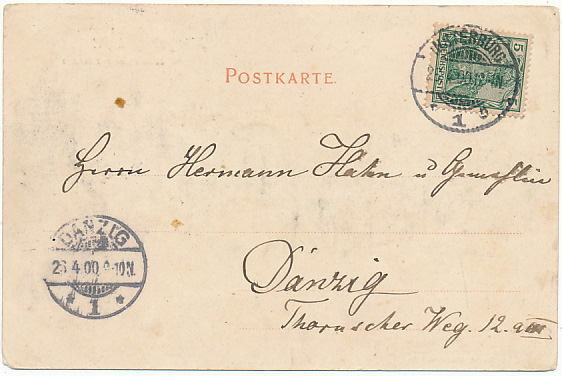 POSTKARTE.
5
1
Herrn Hermann Hahn u Gemahlin
DANZIG
4.00
1
Danzig
Thornscher Weg. 12.